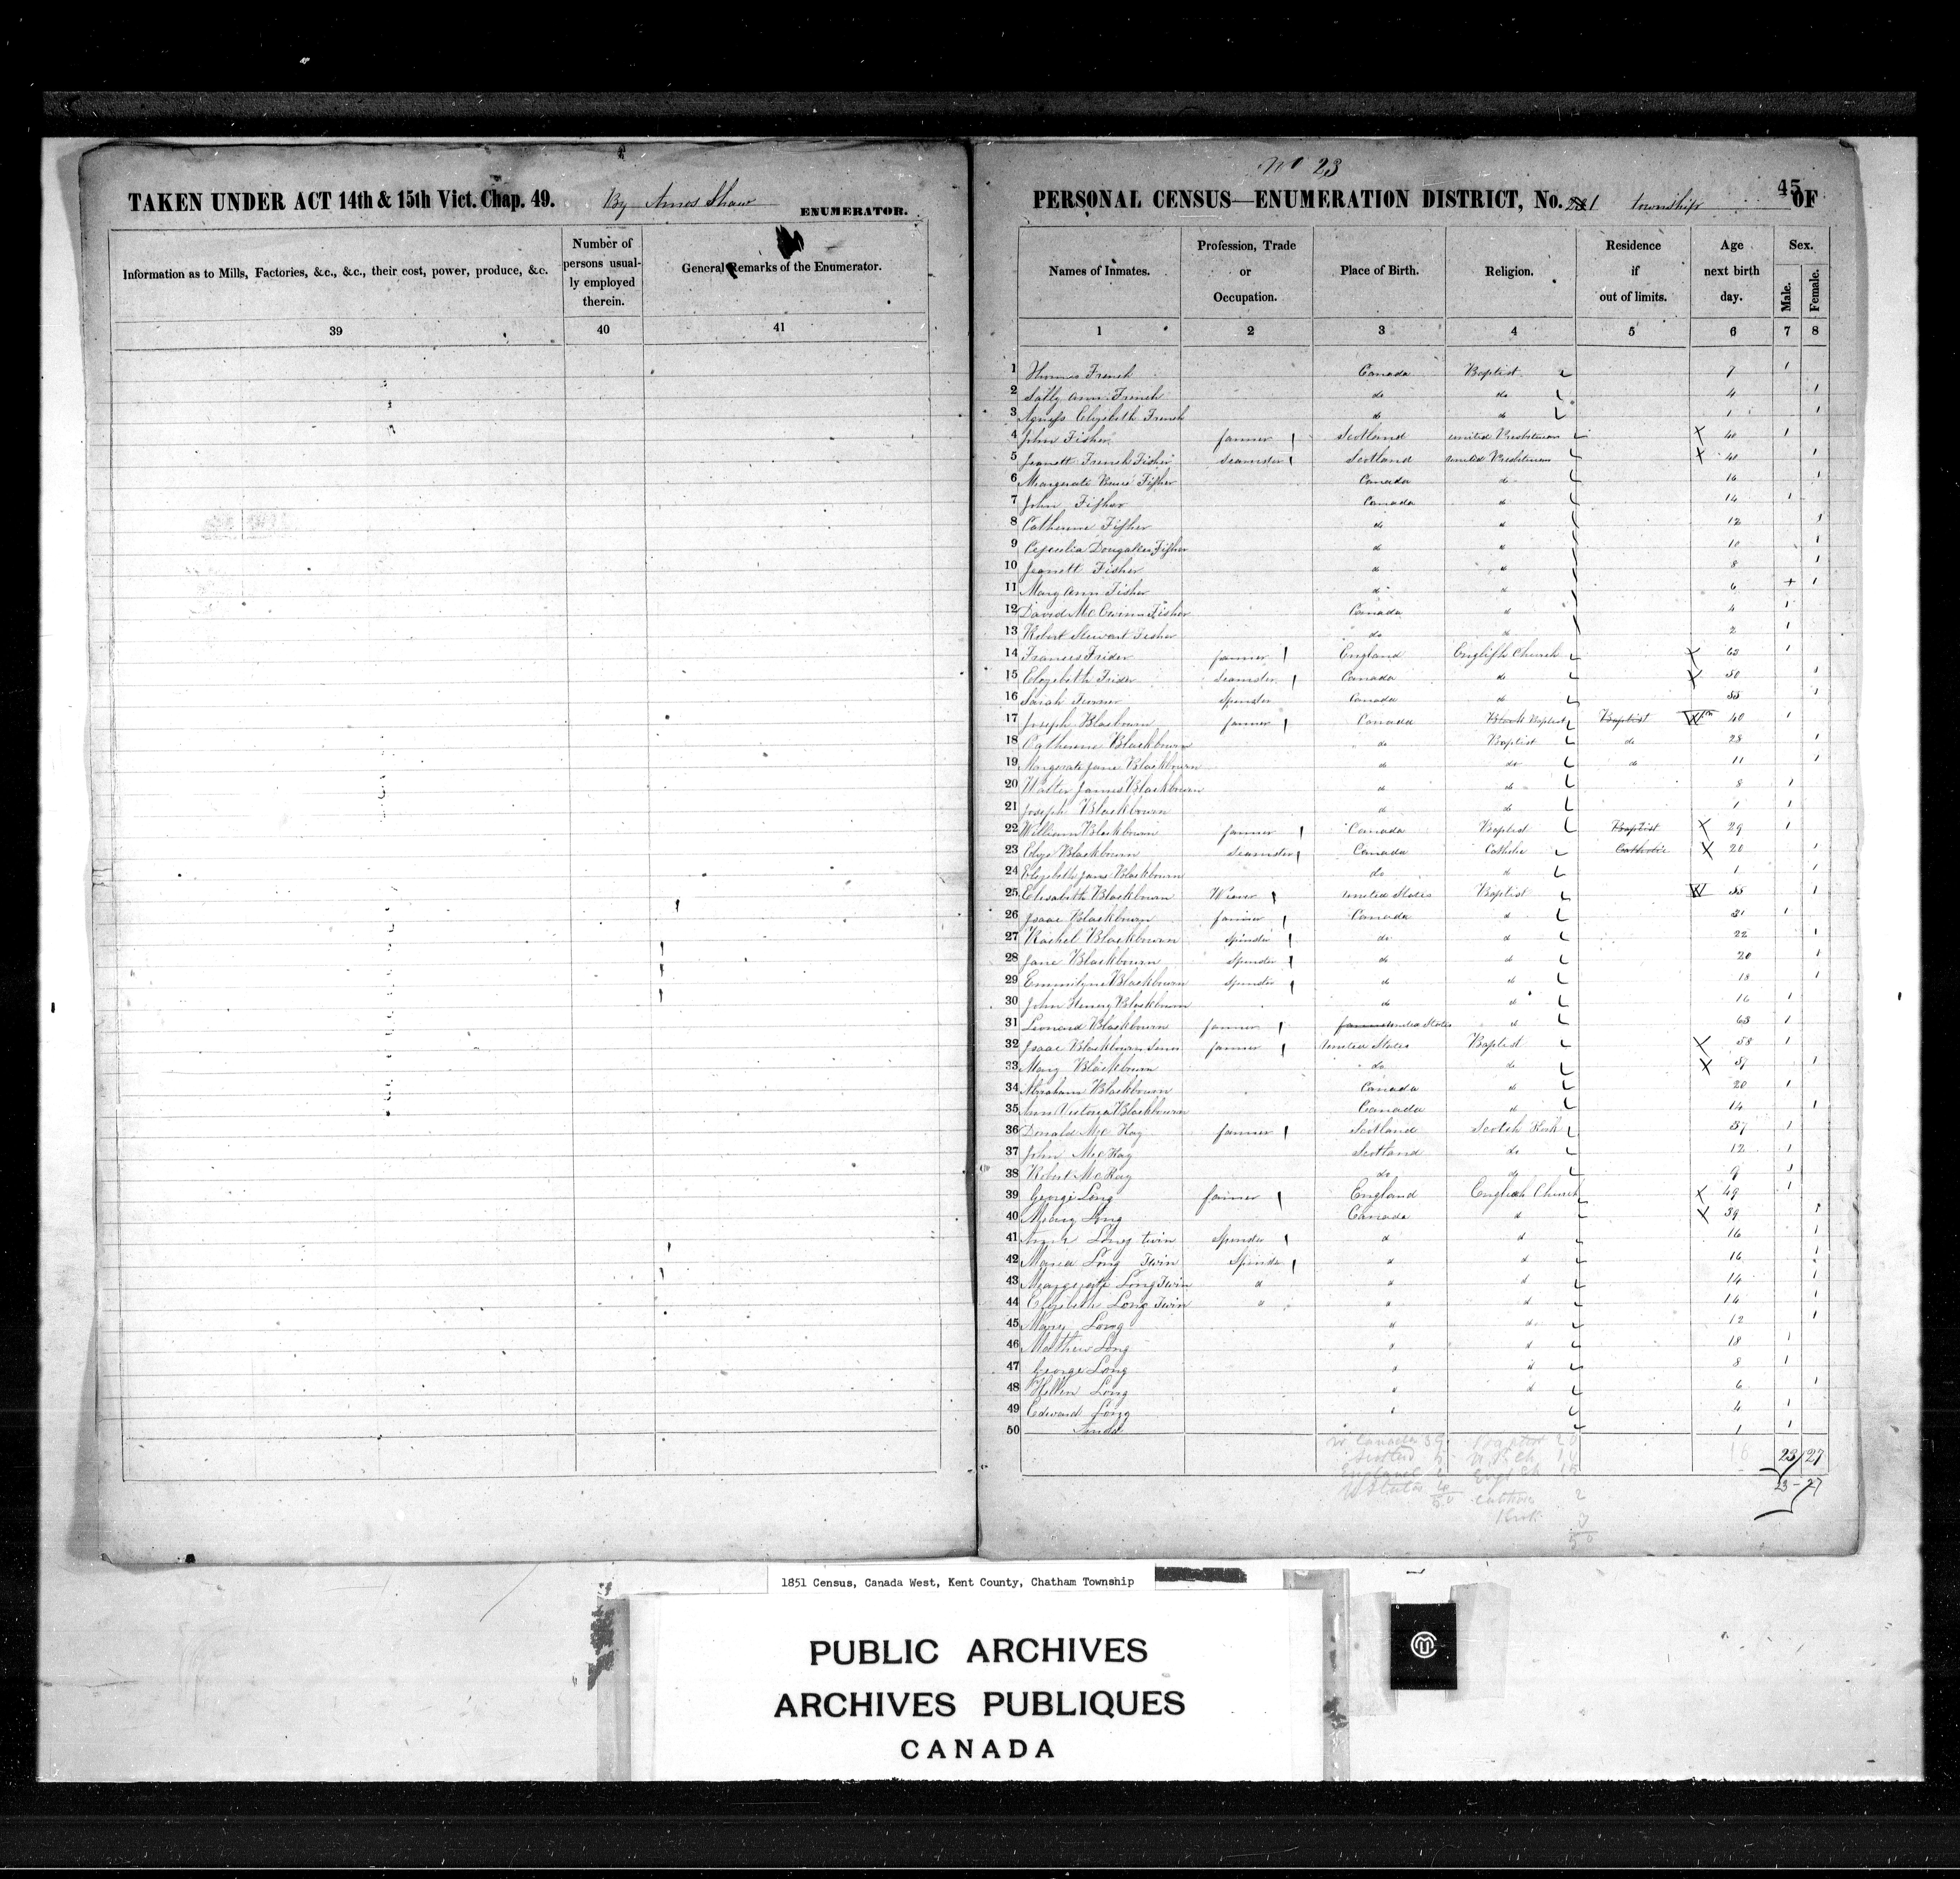 TAKEN UNDER ACT 14th & 15th Vict. Chap. 49. By Amos Shaw ENUMERATOR.
Information as to Mills, Factories, &c., &c., their cost, power, produce, &c.
Number of persons usually employed therein.
General Remarks of the Enumerator.
39 40 41
No 23
45
PERSONAL CENSUS—ENUMERATION DISTRICT, No. 1 township OF
Names of Inmates. Profession, Trade or Occupation. Place of Birth. Religion. Residence if out of limits. Age next birth day. Sex. Male. Female.
1 2 3 4 5 6 7 8
1 Thomas French Canada Baptist 7 1
2 Sally Ann French do do 4 1
3 Agness Elizebeth French do do 1 1
4 John Fisher farmer Scotland united Presbterian X 40 1
5 Jeanett French Fisher Seamster Scotland united Presbterian X 41 1
6 Margerate Fisher Canada do 16 1
7 John Fisher Canada do 14 1
8 Catherine Fisher do do 12 1
9 Dougalles Fisher do do 10 1
10 Jeanett Fisher do do 8 1
11 Mary Ann Fisher do do 6 + 1
12 David Fisher Canada do 4 1
13 Robert Stewart Fisher do do 2 1
14 Francis Frider farmer England English Church X 63 1
15 Elizebeth Frider Seamster Canada do X 50 1
16 Sarah Spinster Canada do 1
17 Joseph Blackburn farmer Canada Baptist Baptist 40 1
18 Catherine Blackbourn do Baptist do 28 1
19 Margerate Jane Blackbourn do do do 11 1
20 Walter James Blackbourn do do 8 1
21 Joseph Blackbourn do do 1 1
22 William Blackbourn farmer Canada Baptist Baptist X 29 1
23 Eliza Blackbourn Seamster Canada Catholic Catholic X 20 1
24 Elizebeth Jane Blackbourn do do 1 1
25 Elisabeth Blackbourn United States Baptist 55 1
26 Isaac Blackbourn farmer Canada do 31 1
27 Rachel Blackbourn Spinster do do 22 1
28 Jane Blackbourn Spinster do do 20 1
29 Emmilyne Blackbourn Spinster do do 18 1
30 John Henery Blackbourn do do 16 1
31 Leonard Blackbourn farmer United States do 63 1
32 Isaac Blackbourn farmer United States Baptist X 58 1
33 Mary Blackbourn do do X 57 1
34 Abraham Blackbourn Canada do 20 1
35 Ann Victoria Blackbourn Canada do 14 1
36 Donald Mc Kay farmer Scotland Scotch Kirk 57 1
37 John McKay Scotland do 12 1
38 Robert McKay do do 9 1
39 George Long farmer England English Church X 49 1
40 Mary Long Canada do X 39 1
41 Long twin Spinster do do 16 1
42 Maria Long Twin Spinster do do 16 1
43 Margerate Long Twin do do do 14 1
44 Elizebeth Long Twin do do 14 1
45 Mary Long do do 12 1
46 Mathew Long do 18 1
47 George Long do 8 1
48 Hellen Long do 6 1
49 Edward Long 4 1
50 1 1
Canada 39 Baptist 20
Scotland 5
England 2
U States 4 2
50 Kirk 3
50
23/27
23-27
1851 Census, Canada West, Kent County, Chatham Township
PUBLIC ARCHIVES
ARCHIVES PUBLIQUES
CANADA